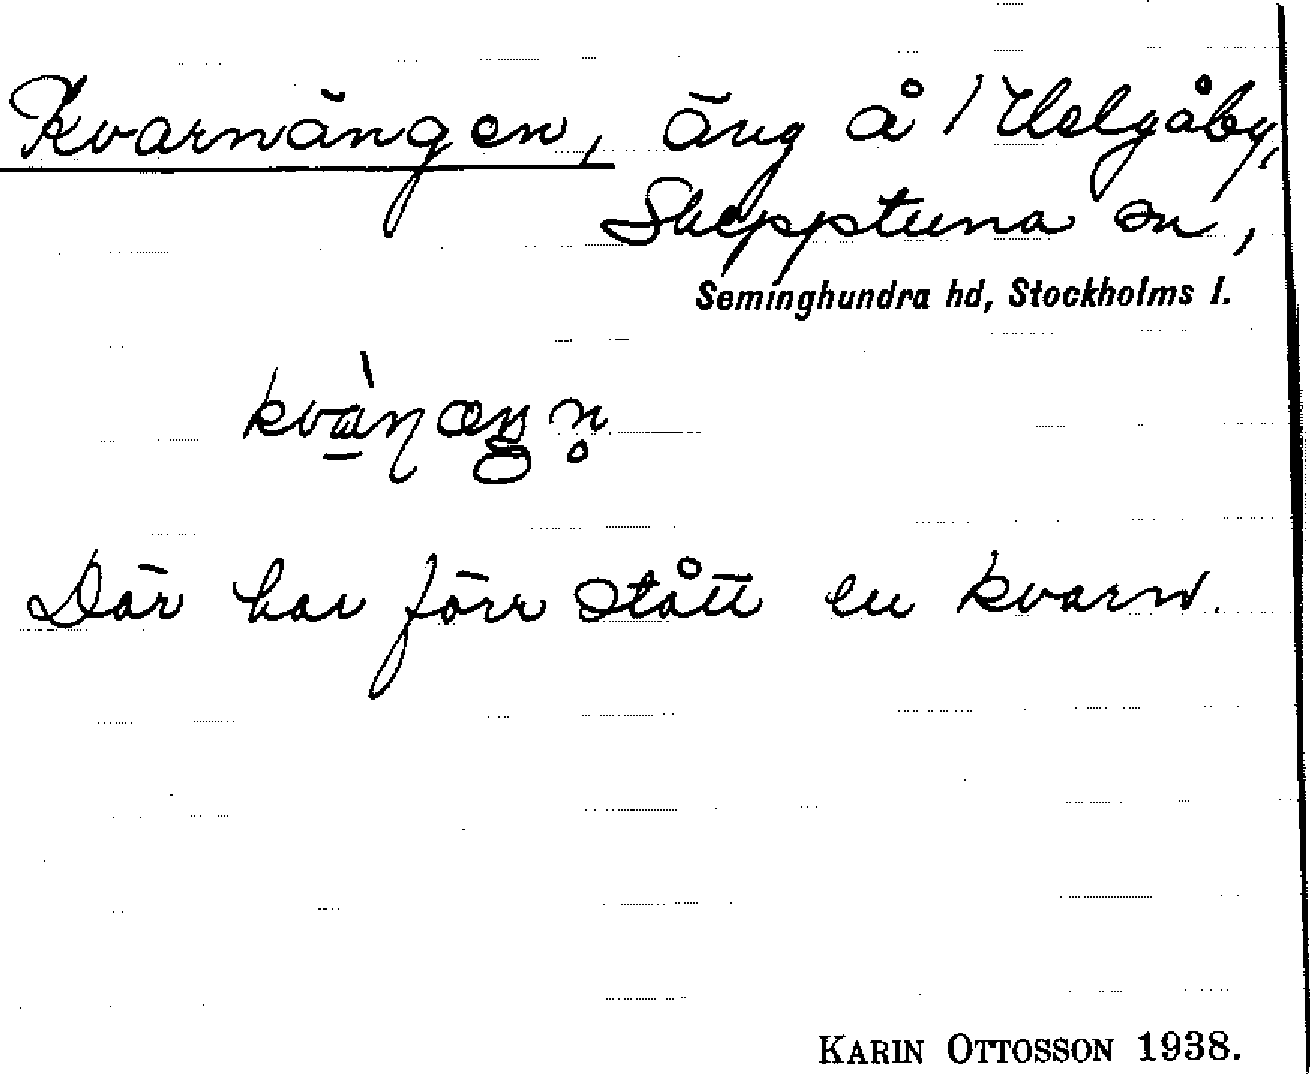 Kvarnängen, äng å 1 Helgåby,
Skepptuna sn,
Seminghundra hd, Stockholms l.
Där har förr stått en kvarn.
KARIN OTTOSSON 1938.